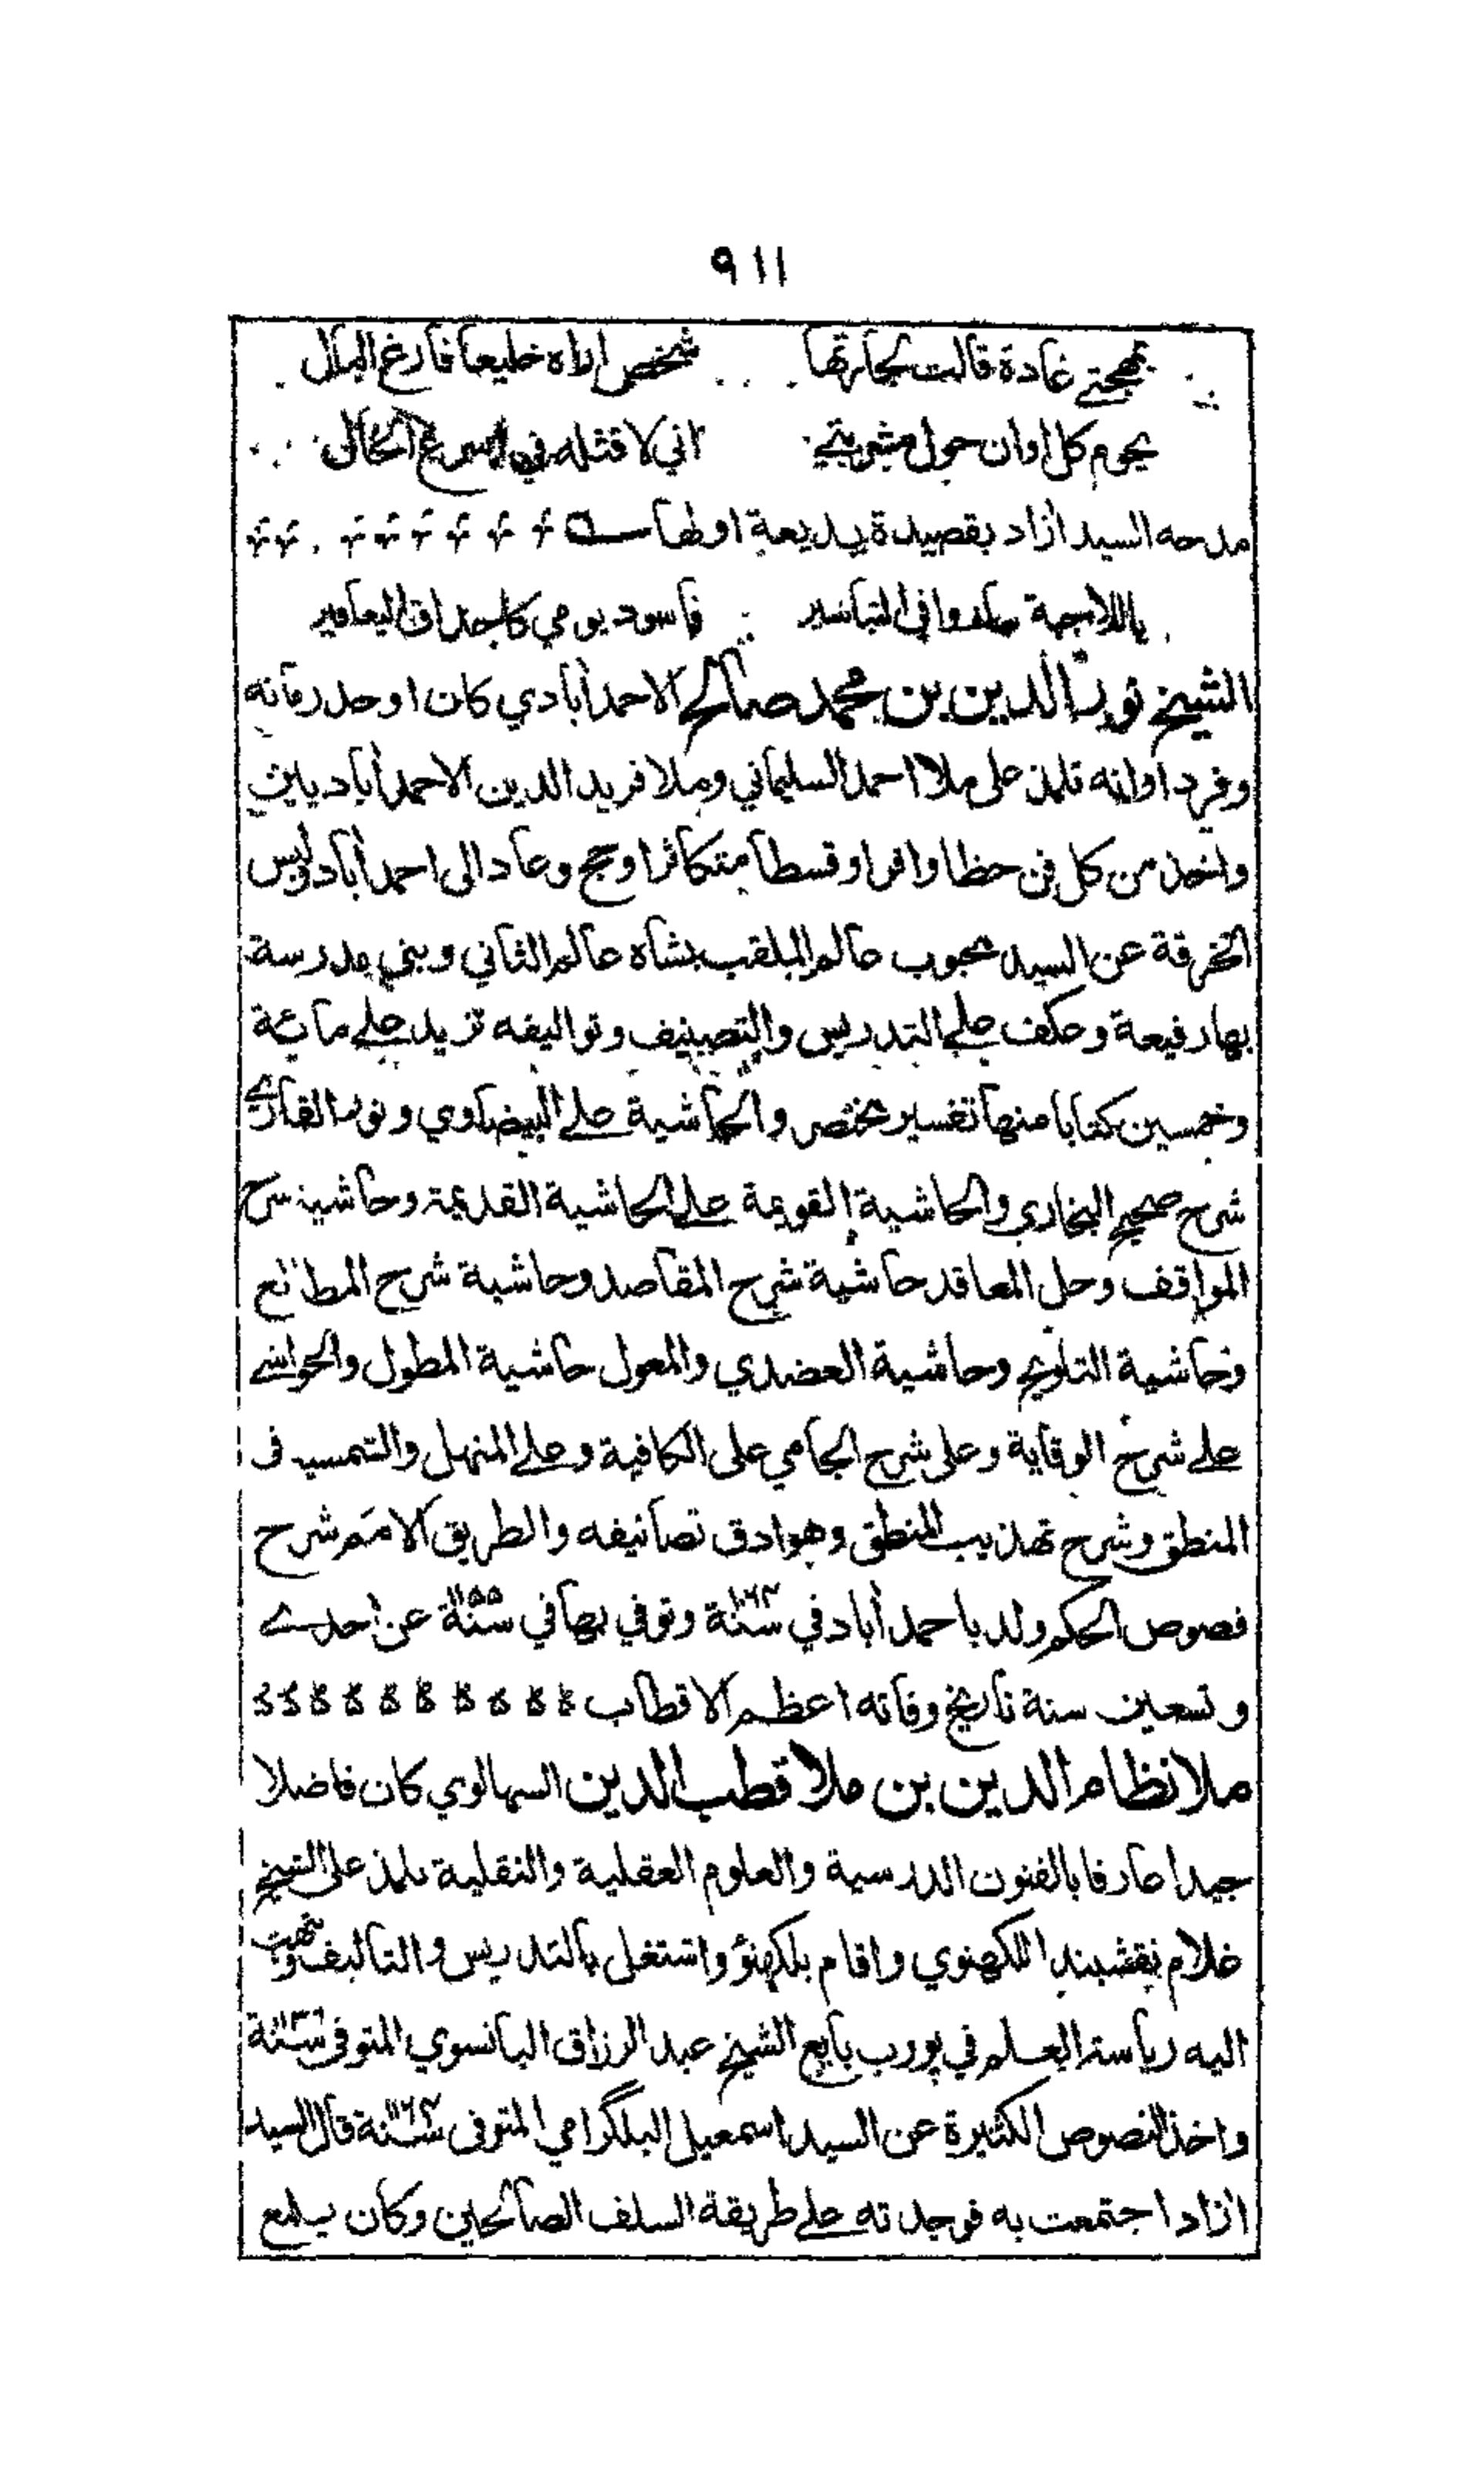 ٩١١
بمهجتي غادة قالت لجارتها شخص اراه خليعا فارغ البال
يحوم كل اوان حول مشربتي اني لاقتله في اسرع الحال
مدحه السيد آزاد بقصيدة بديعة اولها
يا للاحبة في التباشير فاسود يومي كاحداق اليعافير
الشيخ نور الدين بن محمد صالح الاحمدآبادي كان اوحد زمانه
وفرد اوانه تلمذ على ملا احمد السليماني وملا فريد الدين الاحمدآباديين
واخذ من كل فن حظا وافرا وقسطا متكاثرا وحج وعاد الى احمدآباد ولبس
الخرقة عن السيد محبوب عالم الملقب بشاه عالم الثاني وبني مدرسة
بها رفيعة وعكف على التدريس والتصنيف وتواليفه تزيد على مائة
وخمسين كتابا منها تفسير مختصر والحاشية على البيضاوي ونور القاري
شرح صحيح البخاري والحاشية القويمة على الحاشية القديمة وحاشية شرح
المواقف وحل المعاقد حاشية شرح المقاصد وحاشية شرح المطالع
وحاشية التلويح وحاشية العضدي والمعول حاشية المطول والحواشي
على شرح الوقاية وعلى شرح الجامي على الكافية وعلى المنهل والشمسية في
المنطق وشرح تهذيب المنطق وهو ادق تصانيفه والطريق الامم شرح
فصوص الحكم ولد باحمدآباد في سنة ١٠٦٣ وتوفي بها في سنة ١١٥٥ عن احدى
وتسعين سنة تاريخ وفاته اعظم الاقطاب
ملا نظام الدين بن ملا قطب الدين السهالوي كان فاضلا
جيدا عارفا بالفنون الدرسية والعلوم العقلية والنقلية تلمذ على الشيخ
غلام نقشبند اللكهنوي واقام بلكهنؤ واشتغل بالتدريس والتاليف وانتهت
اليه رياسة العلم في پورب بايع الشيخ عبد الرزاق البانسوي المتوفى سنة
واخذ النصوص الكثيرة عن السيد اسمعيل البلگرامي المتوفى سنة ١١٦٣ قال السيد
آزاد اجتمعت به فوجدته على طريقة السلف الصالحين وكان يلمع